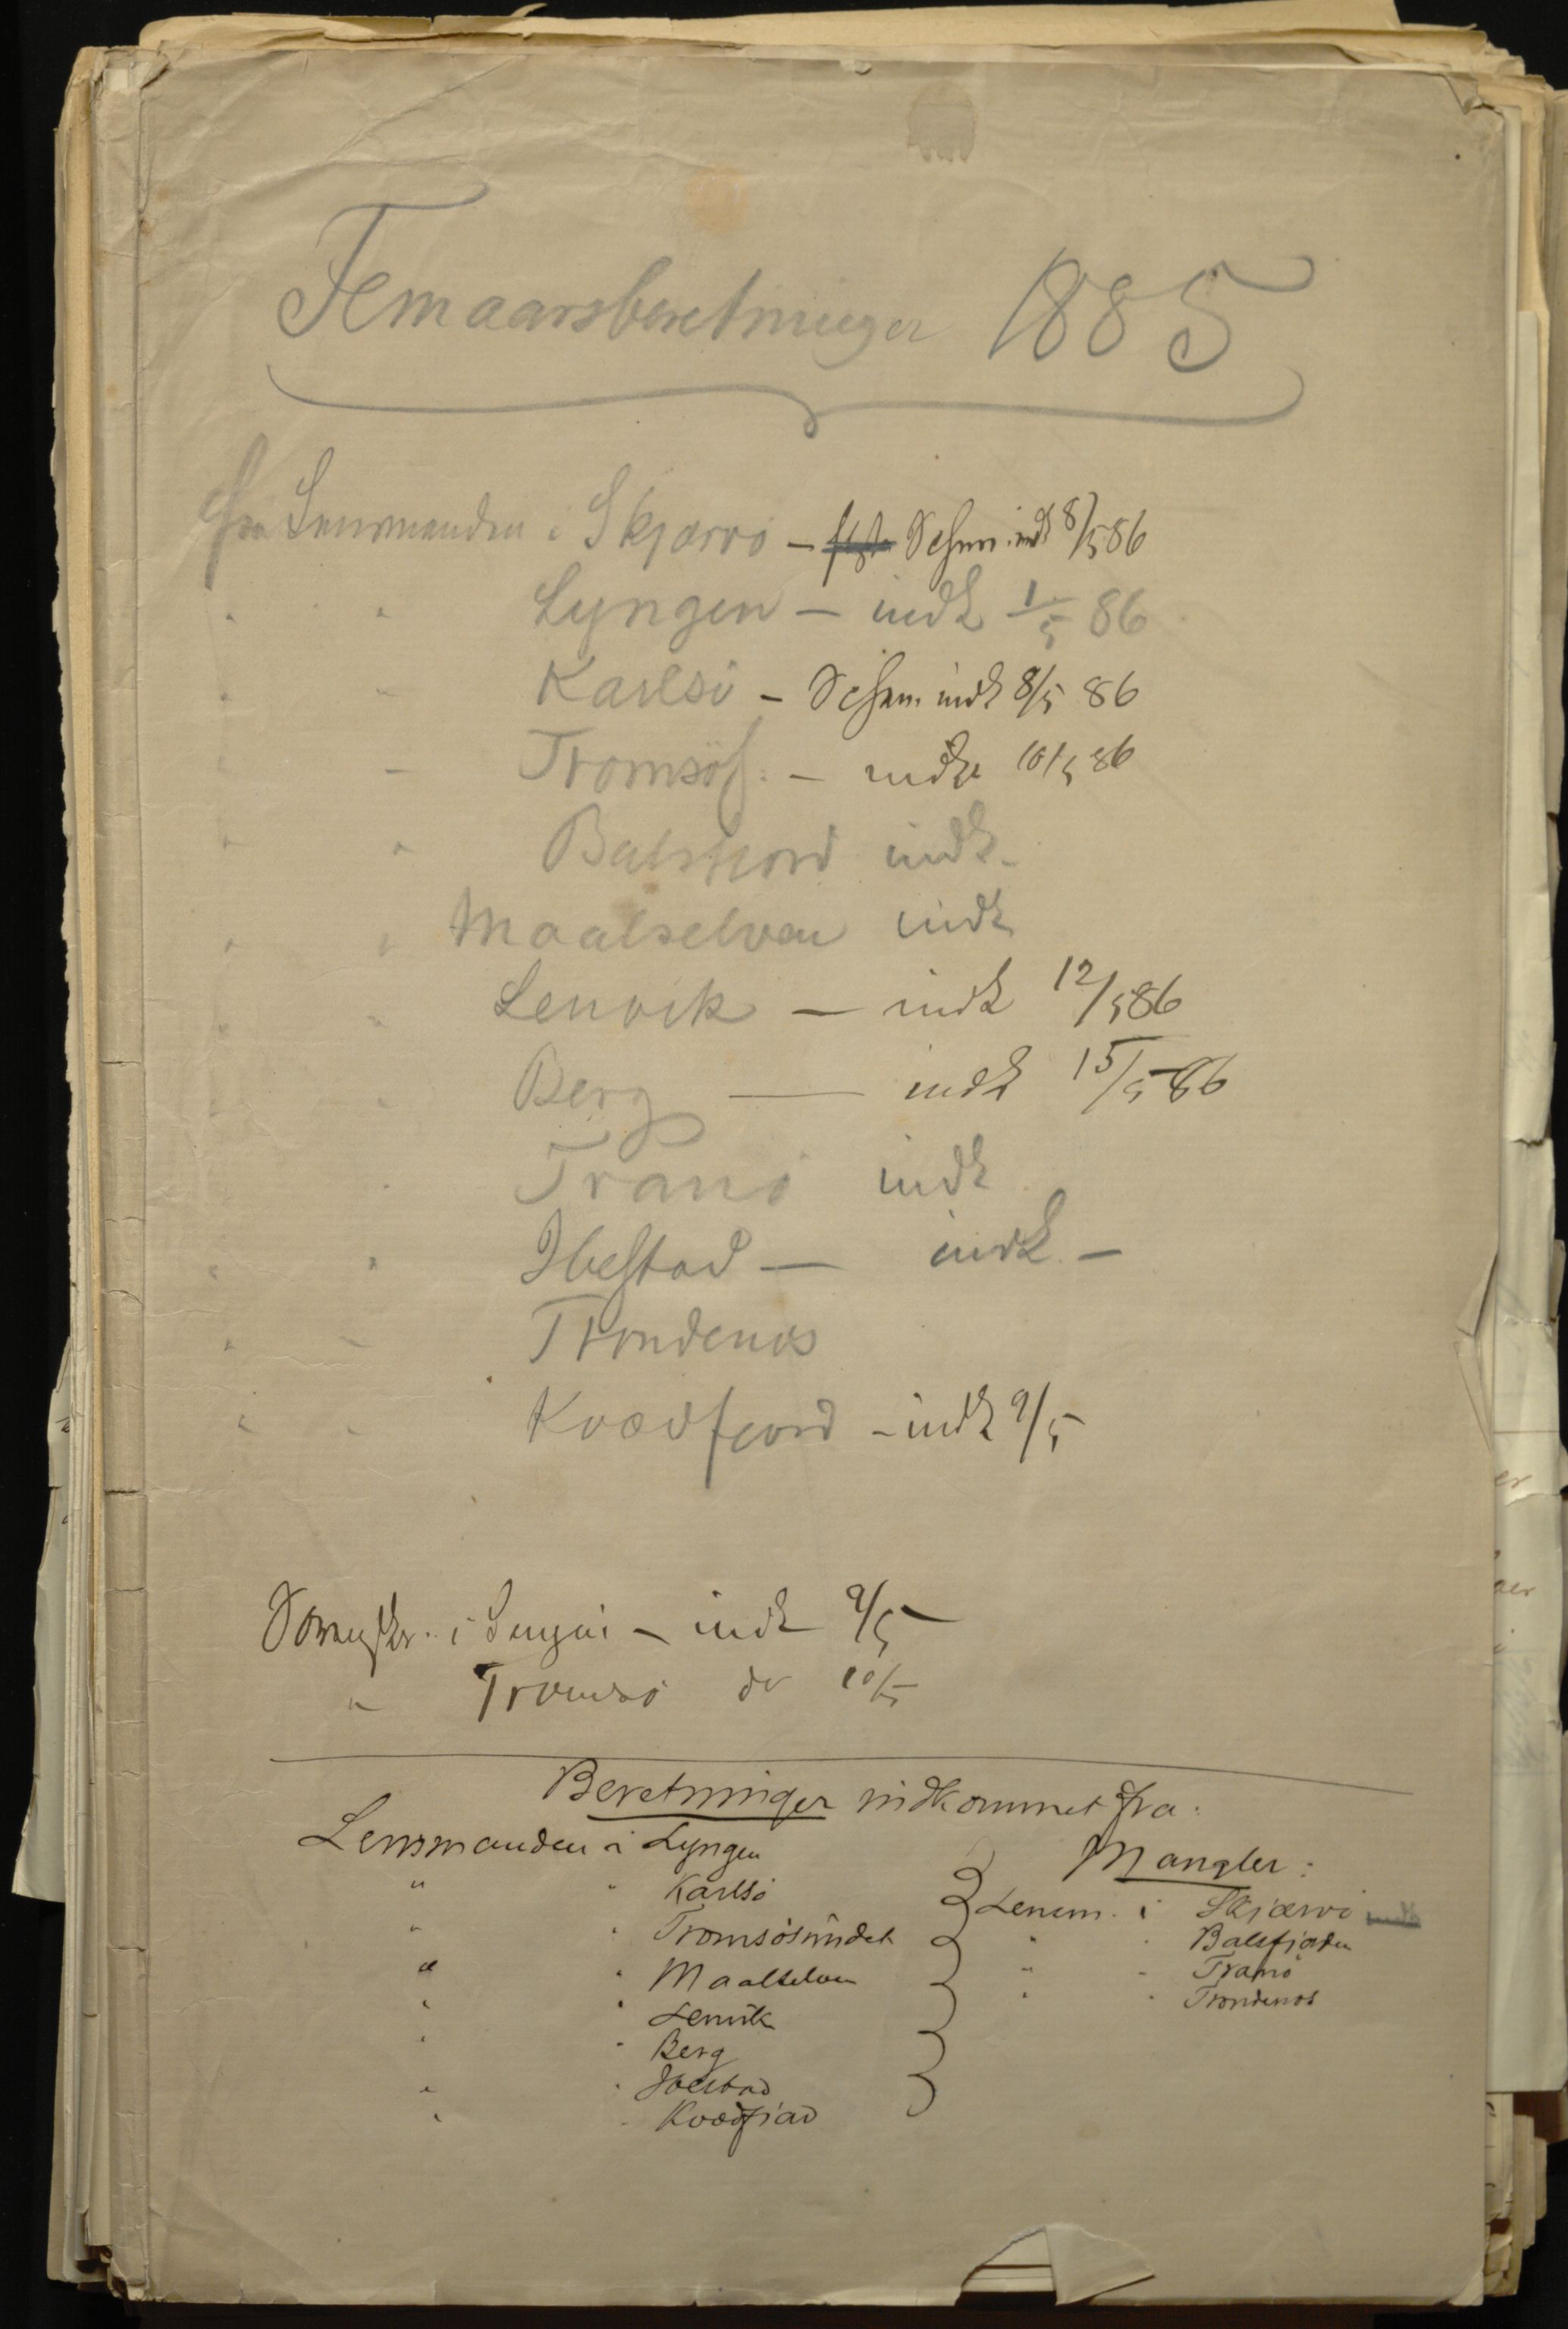 Femaarsberetninger 1885
Fra Lensmanden i Skjærvö – Schm. indk 8/5 86
" " Lyngen – indk 1/5 86
" " Karlsö – Schm. indk 8/5 86
" " Tromsös. – indk 10/5 86
" " Balsfjord indk –
" " Maalselven indk
" " Lenvik – indk 12/5 86
" " Berg – indk 15/5 86
" Tranö indk
" " Ibestad – indk –
" " Trondenes
" " Kvædfjord – indk 9/5
i Lyngen – indk 9/5
" Tromsö do 10/5
Beretninger indkommet fra:
Lensmanden i Lyngen
" " Karlsö
" " Tromsösundet
" " Maalselven
" " Lenvik
" " Berg
" " Ibestad
" " Kvædfjord
Mangler:
Lensm. i Skjærvö
" " Balsfjorden
" " Tranö
" " Trondenes